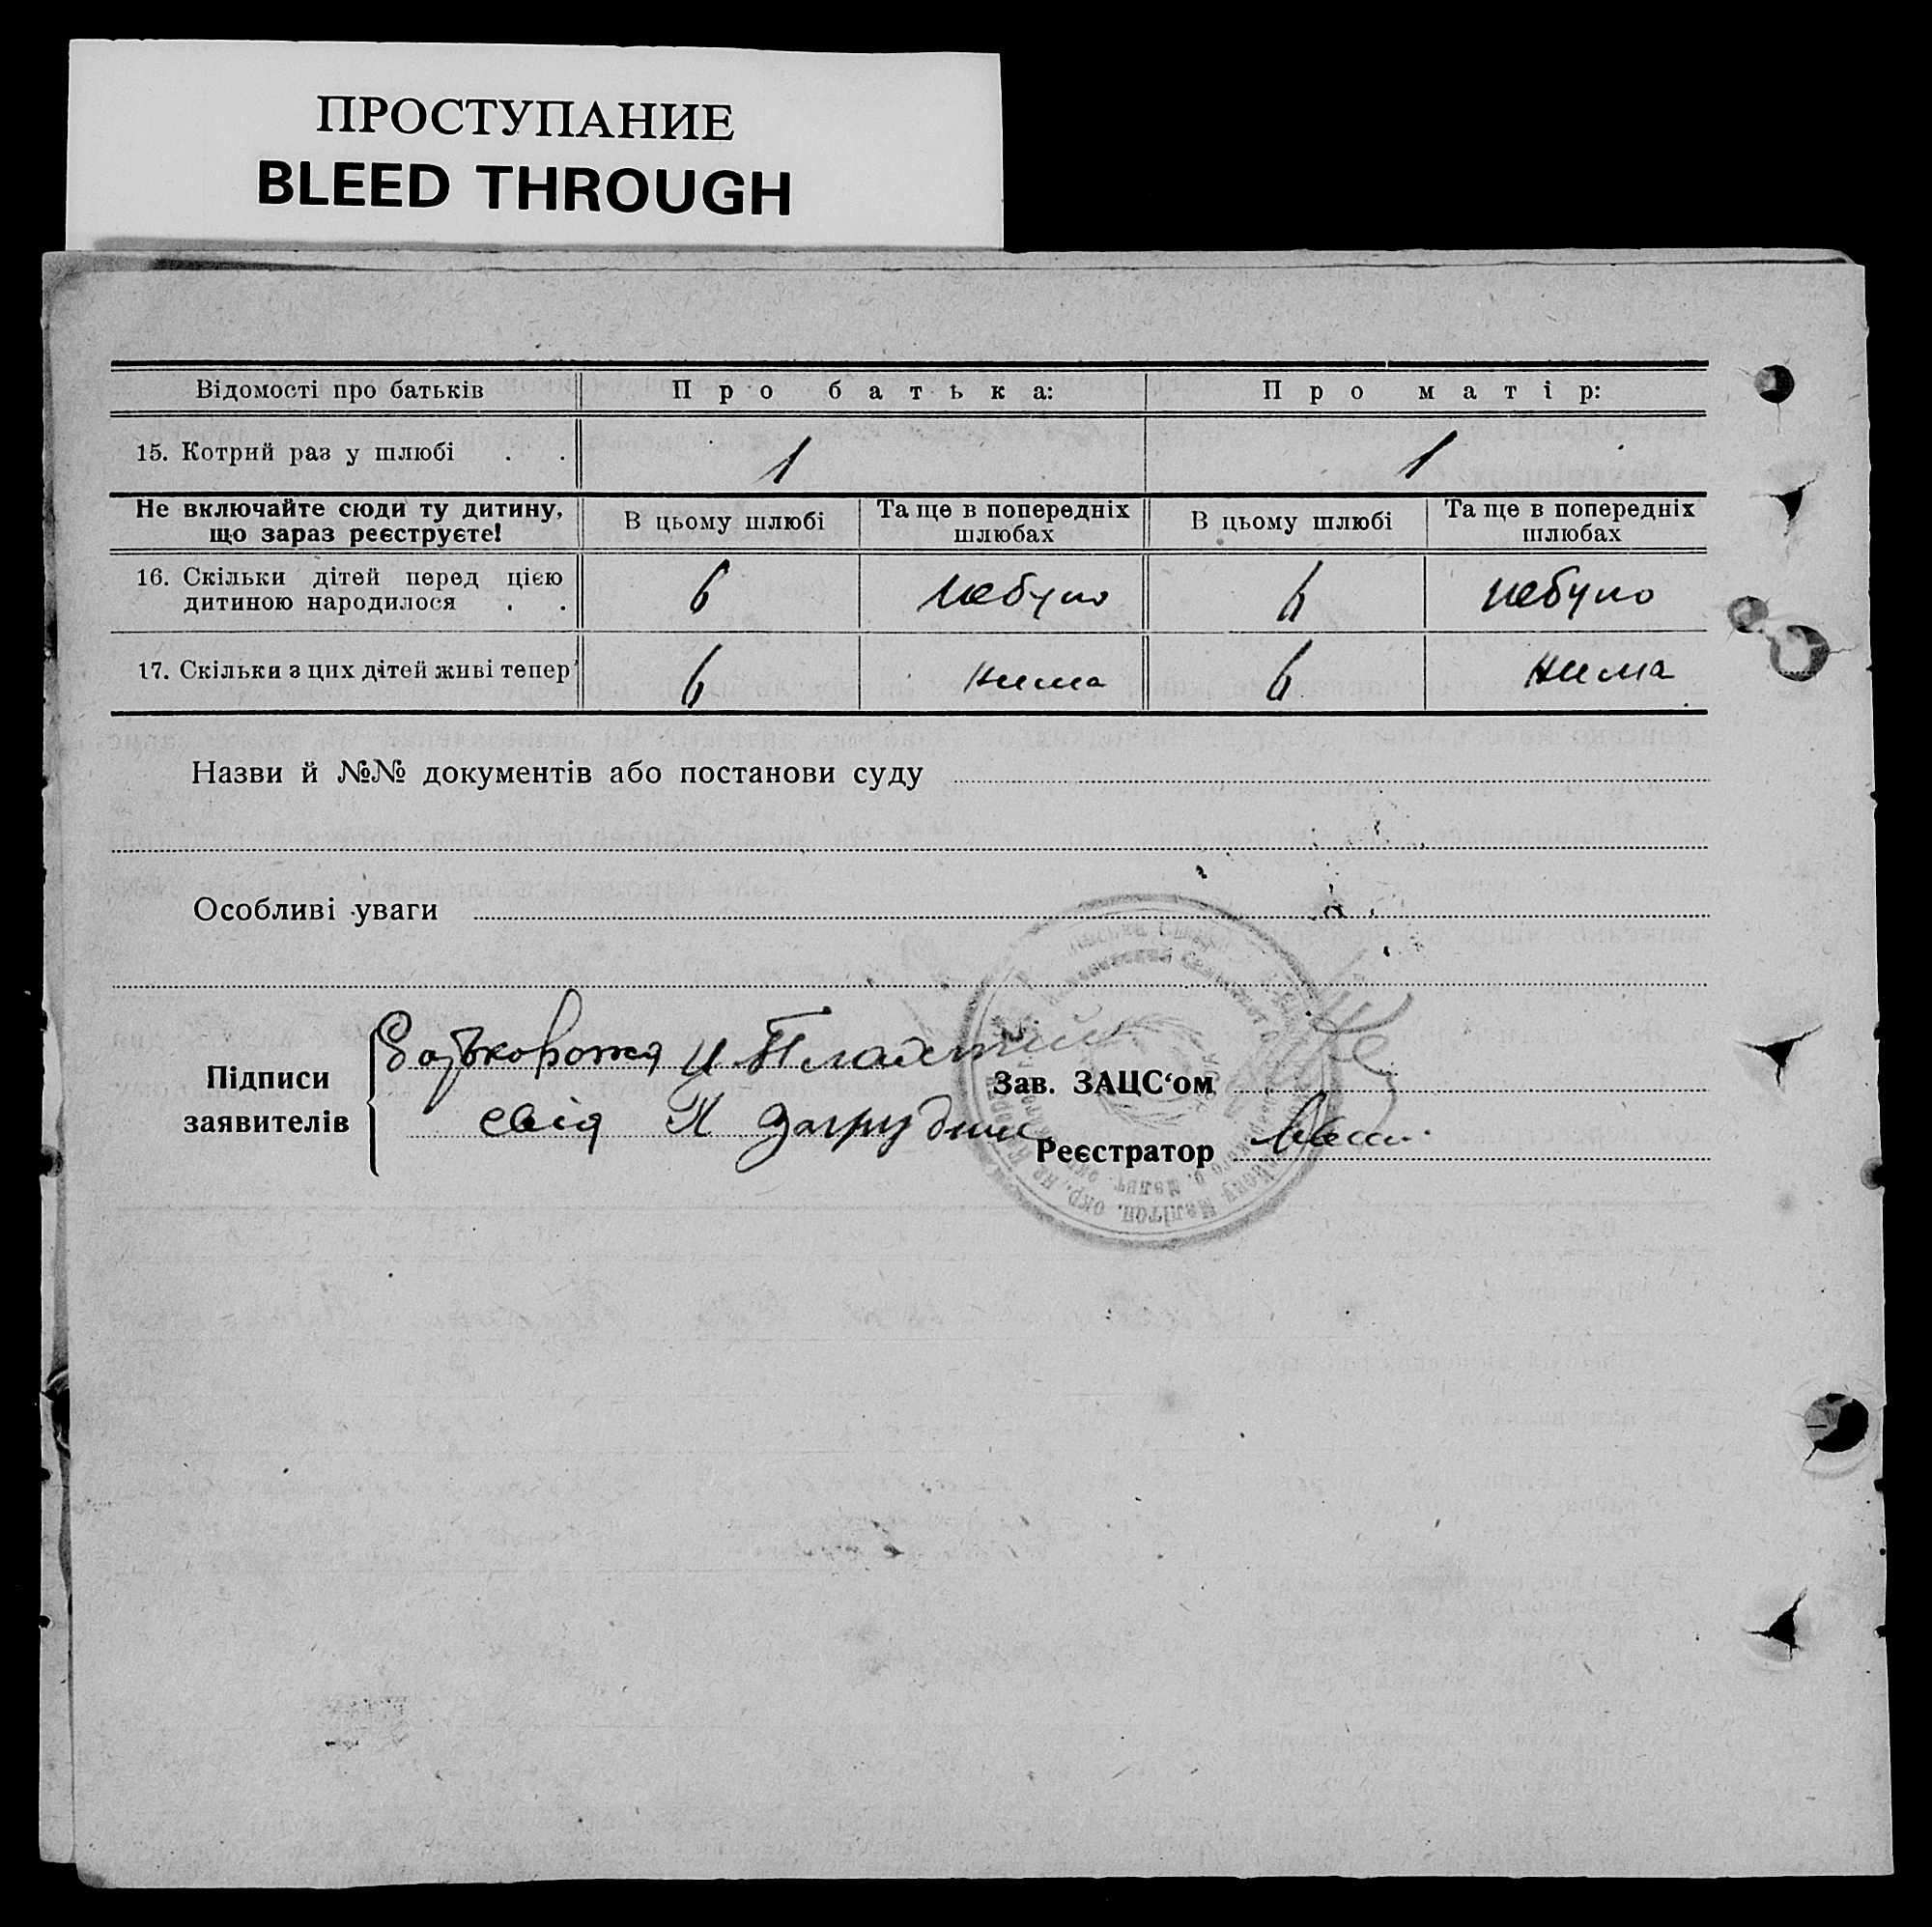 ПРОСТУПАНИЕ
BLEED THROUGH
Відомості про батьків Про батька: Про матір:
15. Котрий раз у шлюбі . . 1 1
Не включайте сюди ту дитину, що зараз реєструєте! В цьому шлюбі Та ще в попередніх шлюбах В цьому шлюбі Та ще в попередніх шлюбах
16. Скільки дітей перед цією дитиною народилося . . 6 небуло 6 небуло
17. Скільки з цих дітей живі тепер 6 нима 6 нима
Назви й №№ документів або постанови суду
Особливі уваги
Підписи заявителів
Зав. ЗАЦС‘ом
Реєстратор